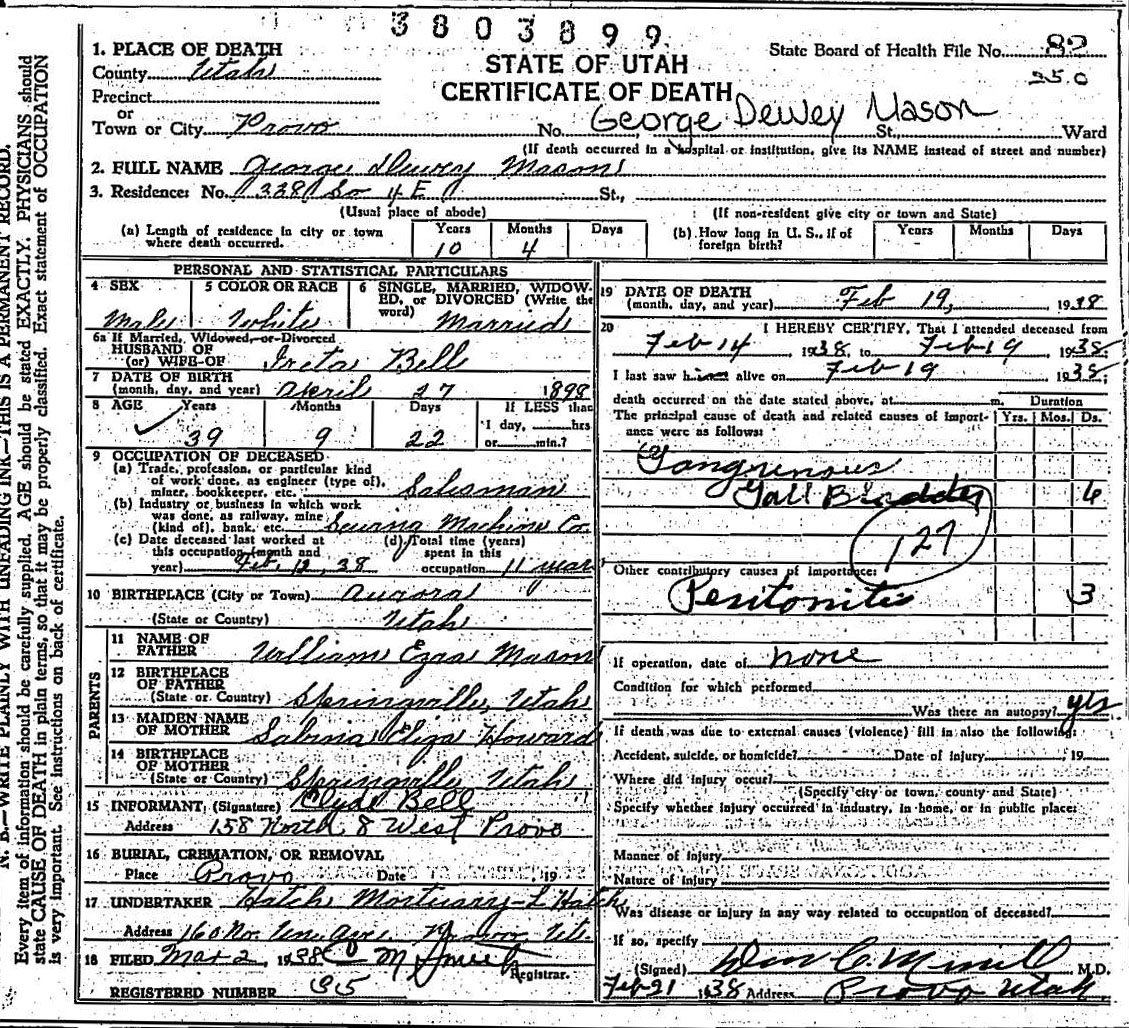 3803899
1. PLACE OF DEATH
County Utah
Precinct
or
Town or City Provo
STATE OF UTAH
CERTIFICATE OF DEATH
State Board of Health File No. 82
250
George Dewey Mason
No. St., Ward
(If death occurred in a hospital or institution, give its NAME instead of street and number)
2. FULL NAME George Dewey Mason
3. Residence: No. 338 So 4 E St.,
(Usual place of abode)
(If non-resident give city or town and State)
(a) Length of residence in city or town where death occurred.
Years Months Days
10 4
(b) How long in U. S., if of foreign birth?
Years Months Days
PERSONAL AND STATISTICAL PARTICULARS
4 SEX
Male
5 COLOR OR RACE
White
6 SINGLE, MARRIED, WIDOWED, or DIVORCED (Write the word)
Married
6a If Married, Widowed, or Divorced
HUSBAND OF
(or) WIFE OF
Ireta Bell
7 DATE OF BIRTH
(month, day, and year) April 27 1898
8 AGE Years Months Days If LESS than
1 day, hrs
or min.?
39 9 22
9 OCCUPATION OF DECEASED
(a) Trade, profession, or particular kind of work done, as engineer (type of), miner, bookkeeper, etc. Salesman
(b) Industry or business in which work was done, as railway, mine (kind of), bank, etc. Sewing Machine Co.
(c) Date deceased last worked at this occupation (month and year) Feb. 12, 38
(d) Total time (years) spent in this occupation 11 years
10 BIRTHPLACE (City or Town) Aurora
(State or Country) Utah
PARENTS
11 NAME OF FATHER William Ezra Mason
12 BIRTHPLACE OF FATHER
(State or Country) Springville, Utah
13 MAIDEN NAME OF MOTHER Sabina Eliza Howard
14 BIRTHPLACE OF MOTHER
(State or Country) Springville Utah
15 INFORMANT, (Signature) Clyde Bell
Address 158 North 8 West Provo
16 BURIAL, CREMATION, OR REMOVAL
Place Provo Date , 19
17 UNDERTAKER Hatch Mortuary - L Hatch
Address 160 No. Un. Ave. Provo Ut.
18 FILED Mar 2, 1938
Registrar.
REGISTERED NUMBER 35
19 DATE OF DEATH
(month, day, and year) Feb 19, 1938
20 I HEREBY CERTIFY, That I attended deceased from
Feb 14 1938, to Feb 19 1938;
I last saw him alive on Feb 19 1938;
death occurred on the date stated above, at m.
Duration
Yrs. Mos. Ds.
The principal cause of death and related causes of importance were as follows:
Gangrenous
Gall Bladder 6
127
Other contributory causes of importance:
Peritonitis 3
If operation, date of none
Condition for which performed
Was there an autopsy? yes
If death was due to external causes (violence) fill in also the following:
Accident, suicide, or homicide? Date of injury , 19
Where did injury occur?
(Specify city or town, county and State)
Specify whether injury occurred in industry, in home, or in public place:
Manner of injury
Nature of injury
Was disease or injury in any way related to occupation of deceased?
If so, specify
(Signed) M.D.
Feb 21 1938 Address Provo Utah
N. B.—WRITE PLAINLY WITH UNFADING INK—THIS IS A PERMANENT RECORD.
Every item of information should be carefully supplied. AGE should be stated EXACTLY. PHYSICIANS should
state CAUSE OF DEATH in plain terms, so that it may be properly classified. Exact statement of OCCUPATION
is very important. See instructions on back of certificate.